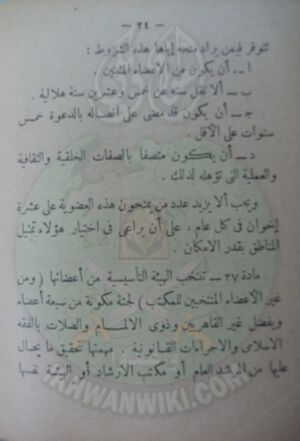 — ٢٤ —
تتوفر فيمن يراد منحه إياها هذه الشروط :
ا — أن يكون من الأعضاء المثبتين
ب — ألا تقل سنه عن خمس وعشرين سنة هلالية .
ج — أن يكون قد مضى على اتصاله بالدعوة خمس
سنوات على الأقل .
د — أن يكون متصفا بالصفات الخلقية والثقافية
والعملية التى تؤهله لذلك .
ويجب ألا يزيد عدد من يمنحون هذه العضوية على عشرة
إخوان فى كل عام ، على أن يراعى فى اختيار هؤلاء تمثيل
المناطق بقدر الامكان .
مادة ٣٧ — تنتخب الهيئة التأسيسية من أعضائها ( ومن
غير الاعضاء المنتخبين للمكتب ) لجنة مكونة من سبعة أعضاء
ويفضل غير القاهريين وذوى الالمام والصلات بالفقه
الاسلامى والاجراءات القانونية مهمتها تحقيق ما يحال
عليها من المرشد العام أو مكتب الارشاد أو الهيئة نفسها
IKHWANWIKI.COM